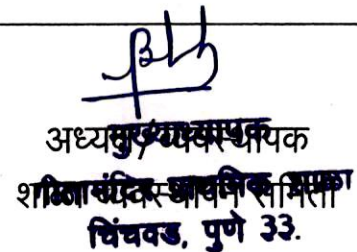 अध्यक्ष / व्यवस्थापक
मुख्याध्यापक
शाळा व्यवस्थापन समिती
प्राथमिक शाळा
चिंचवड, पुणे ३३.